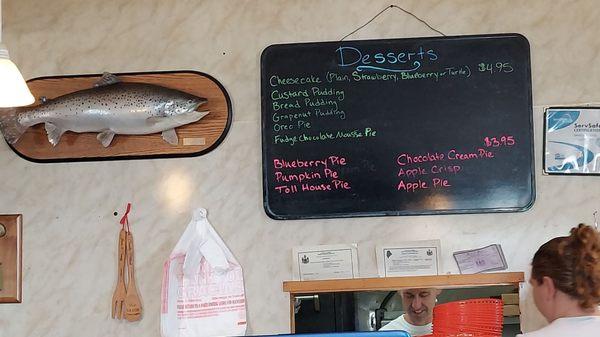 Desserts
Cheesecake (Plain, Strawberry, Blueberry or Turtle) $4.95
Custard Pudding
Bread Pudding
Grapenut Pudding
Oreo Pie
Fudge Chocolate Mousse Pie
$3.95
Blueberry Pie
Pumpkin Pie
Toll House Pie
Chocolate Cream Pie
Apple Crisp
Apple Pie
ServSafe
CERTIFICATION